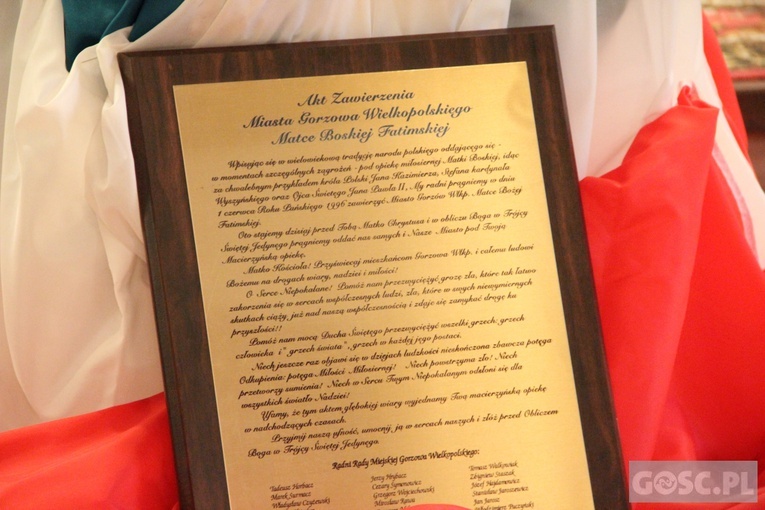 Akt Zawierzenia
Miasta Gorzowa Wielkopolskiego
Matce Boskiej Fatimskiej
Wpisując się w wielowiekową tradycję narodu polskiego oddającego się -
w momentach szczególnych zagrożeń - pod opiekę miłosiernej Matki Boskiej, idąc
za chwalebnym przykładem króla Polski Jana Kazimierza, Stefana kardynała
Wyszyńskiego oraz Ojca Świętego Jana Pawła II, My radni pragniemy w dniu
1 czerwca Roku Pańskiego 1996 zawierzyć Miasto Gorzów Wlkp. Matce Bożej
Fatimskiej.
Oto stajemy dzisiaj przed Tobą Matko Chrystusa i w obliczu Boga w Trójcy
Świętej Jedynego pragniemy oddać nas samych i Nasze Miasto pod Twoją
Macierzyńską opiekę.
Matko Kościoła! Przyświecaj mieszkańcom Gorzowa Wlkp. i całemu ludowi
Bożemu na drogach wiary, nadziei i miłości!
O Serce Niepokalane! Pomóż nam przezwyciężyć grozę zła, które tak łatwo
zakorzenia się w sercach współczesnych ludzi, zła, które w swych niewymiernych
skutkach ciąży, już nad naszą współczesnością i zdaje się zamykać drogę ku
przyszłości!!
Pomóż nam mocą Ducha Świętego przezwyciężyć wszelki grzech, grzech
człowieka i " grzech świata", grzech w każdej jego postaci.
Niech jeszcze raz objawi się w dziejach ludzkości nieskończona zbawcza potęga
Odkupienia: potęga Miłości Miłosiernej! Niech powstrzyma zło! Niech
przetworzy sumienia! Niech w Sercu Twym Niepokalanym odsłoni się dla
wszystkich światło Nadziei!
Ufamy, że tym aktem głębokiej wiary wyjednamy Twą macierzyńską opiekę
w nadchodzących czasach.
Przyjmij naszą ufność, umocnij ją w sercach naszych i złóż przed Obliczem
Boga w Trójcy Świętej Jedynego.
Radni Rady Miejskiej Gorzowa Wielkopolskiego:
Tadeusz Horbacz
Marek Surmacz
Władysław
Jerzy Hrybacz
Cezary Symonowicz
Grzegorz Wojciechowski
Mirosław Rawa
Tomasz Walkowiak
Zbigniew Stasiak
Józef
Stanisław Jaroszewicz
Jan Jarosz
GOSC.PL